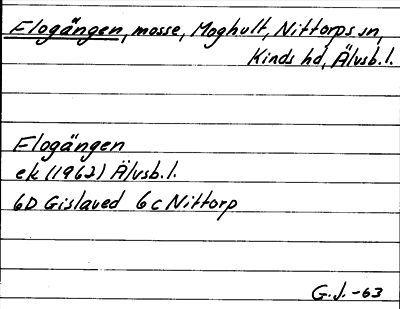 Flogängen, mosse, Moghult, Nittorps sn,
Kinds hd, Älvsb. l.
Flogängen
ek (1962) Älvsb. l.
6D Gislaved 6c Nittorp
G. J. -63